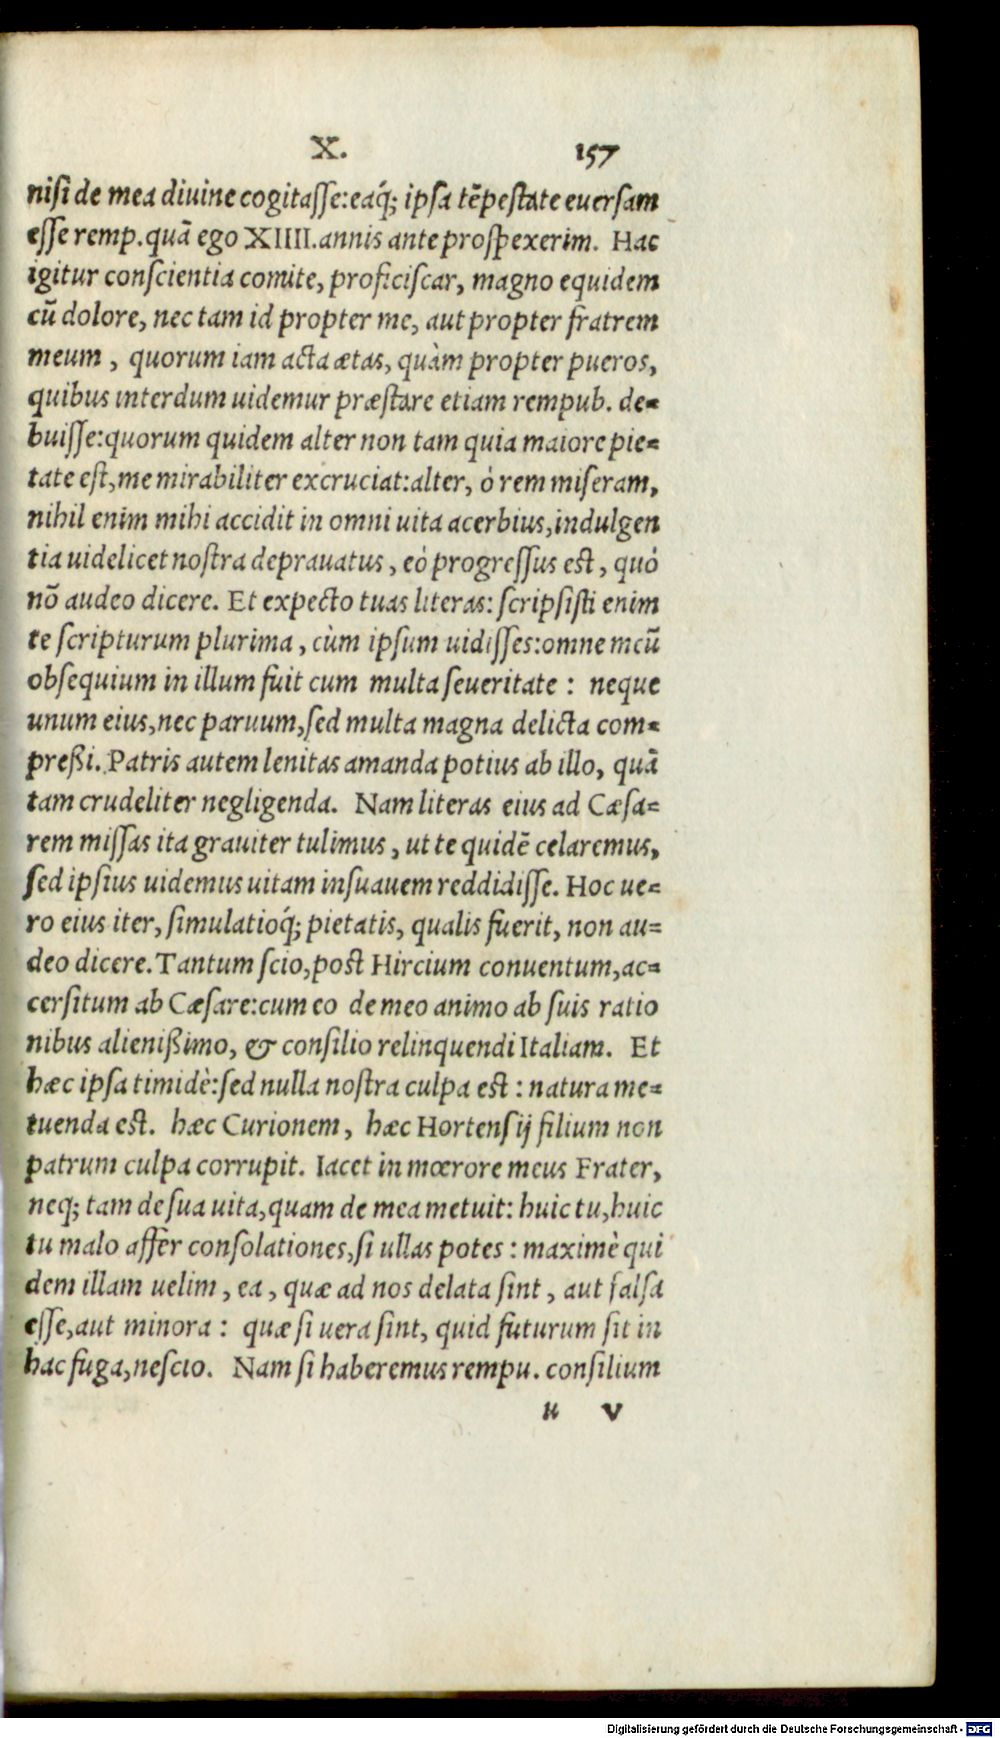 X. 157
nisi de mea diuine cogitasse:eaq́; ipsa tẽpestate euersam
esse remp.quã ego XIIII.annis ante prospexerim. Hac
igitur conscientia comite, proficiscar, magno equidem
cũ dolore, nec tam id propter me, aut propter fratrem
meum , quorum iam acta ætas, quàm propter pueros,
quibus interdum uidemur præstare etiam rempub. de-
buisse:quorum quidem alter non tam quia maiore pie-
tate est,me mirabiliter excruciat:alter, ò rem miseram,
nihil enim mihi accidit in omni uita acerbius,indulgen
tia uidelicet nostra deprauatus , eò progressus est , quò
nõ audeo dicere. Et expecto tuas literas: scripsisti enim
te scripturum plurima , cùm ipsum uidisses:omne meũ
obsequium in illum fuit cum multa seueritate : neque
unum eius,nec paruum,sed multa magna delicta com-
preßi. Patris autem lenitas amanda potius ab illo, quã
tam crudeliter negligenda. Nam literas eius ad Cæsa-
rem missas ita grauiter tulimus , ut te quidẽ celaremus,
sed ipsius uidemus uitam insuauem reddidisse. Hoc ue-
ro eius iter, simulatioq́; pietatis, qualis fuerit, non au-
deo dicere. Tantum scio,post Hircium conuentum,ac-
cersitum ab Cæsare:cum eo de meo animo ab suis ratio
nibus alienißimo, & consilio relinquendi Italiam. Et
hæc ipsa timidè:sed nulla nostra culpa est : natura me-
tuenda est. hæc Curionem , hæc Hortensij filium non
patrum culpa corrupit. Iacet in mœrore meus Frater,
neq; tam de sua uita,quam de mea metuit: huic tu,huic
tu malo affer consolationes,si ullas potes : maximè qui
dem illam uelim , ea , quæ ad nos delata sint , aut falsa
esse,aut minora : quæ si uera sint, quid futurum sit in
hac fuga,nescio. Nam si haberemus rempu. consilium
u v
Digitalisierung gefördert durch die Deutsche Forschungsgemeinschaft - DFG